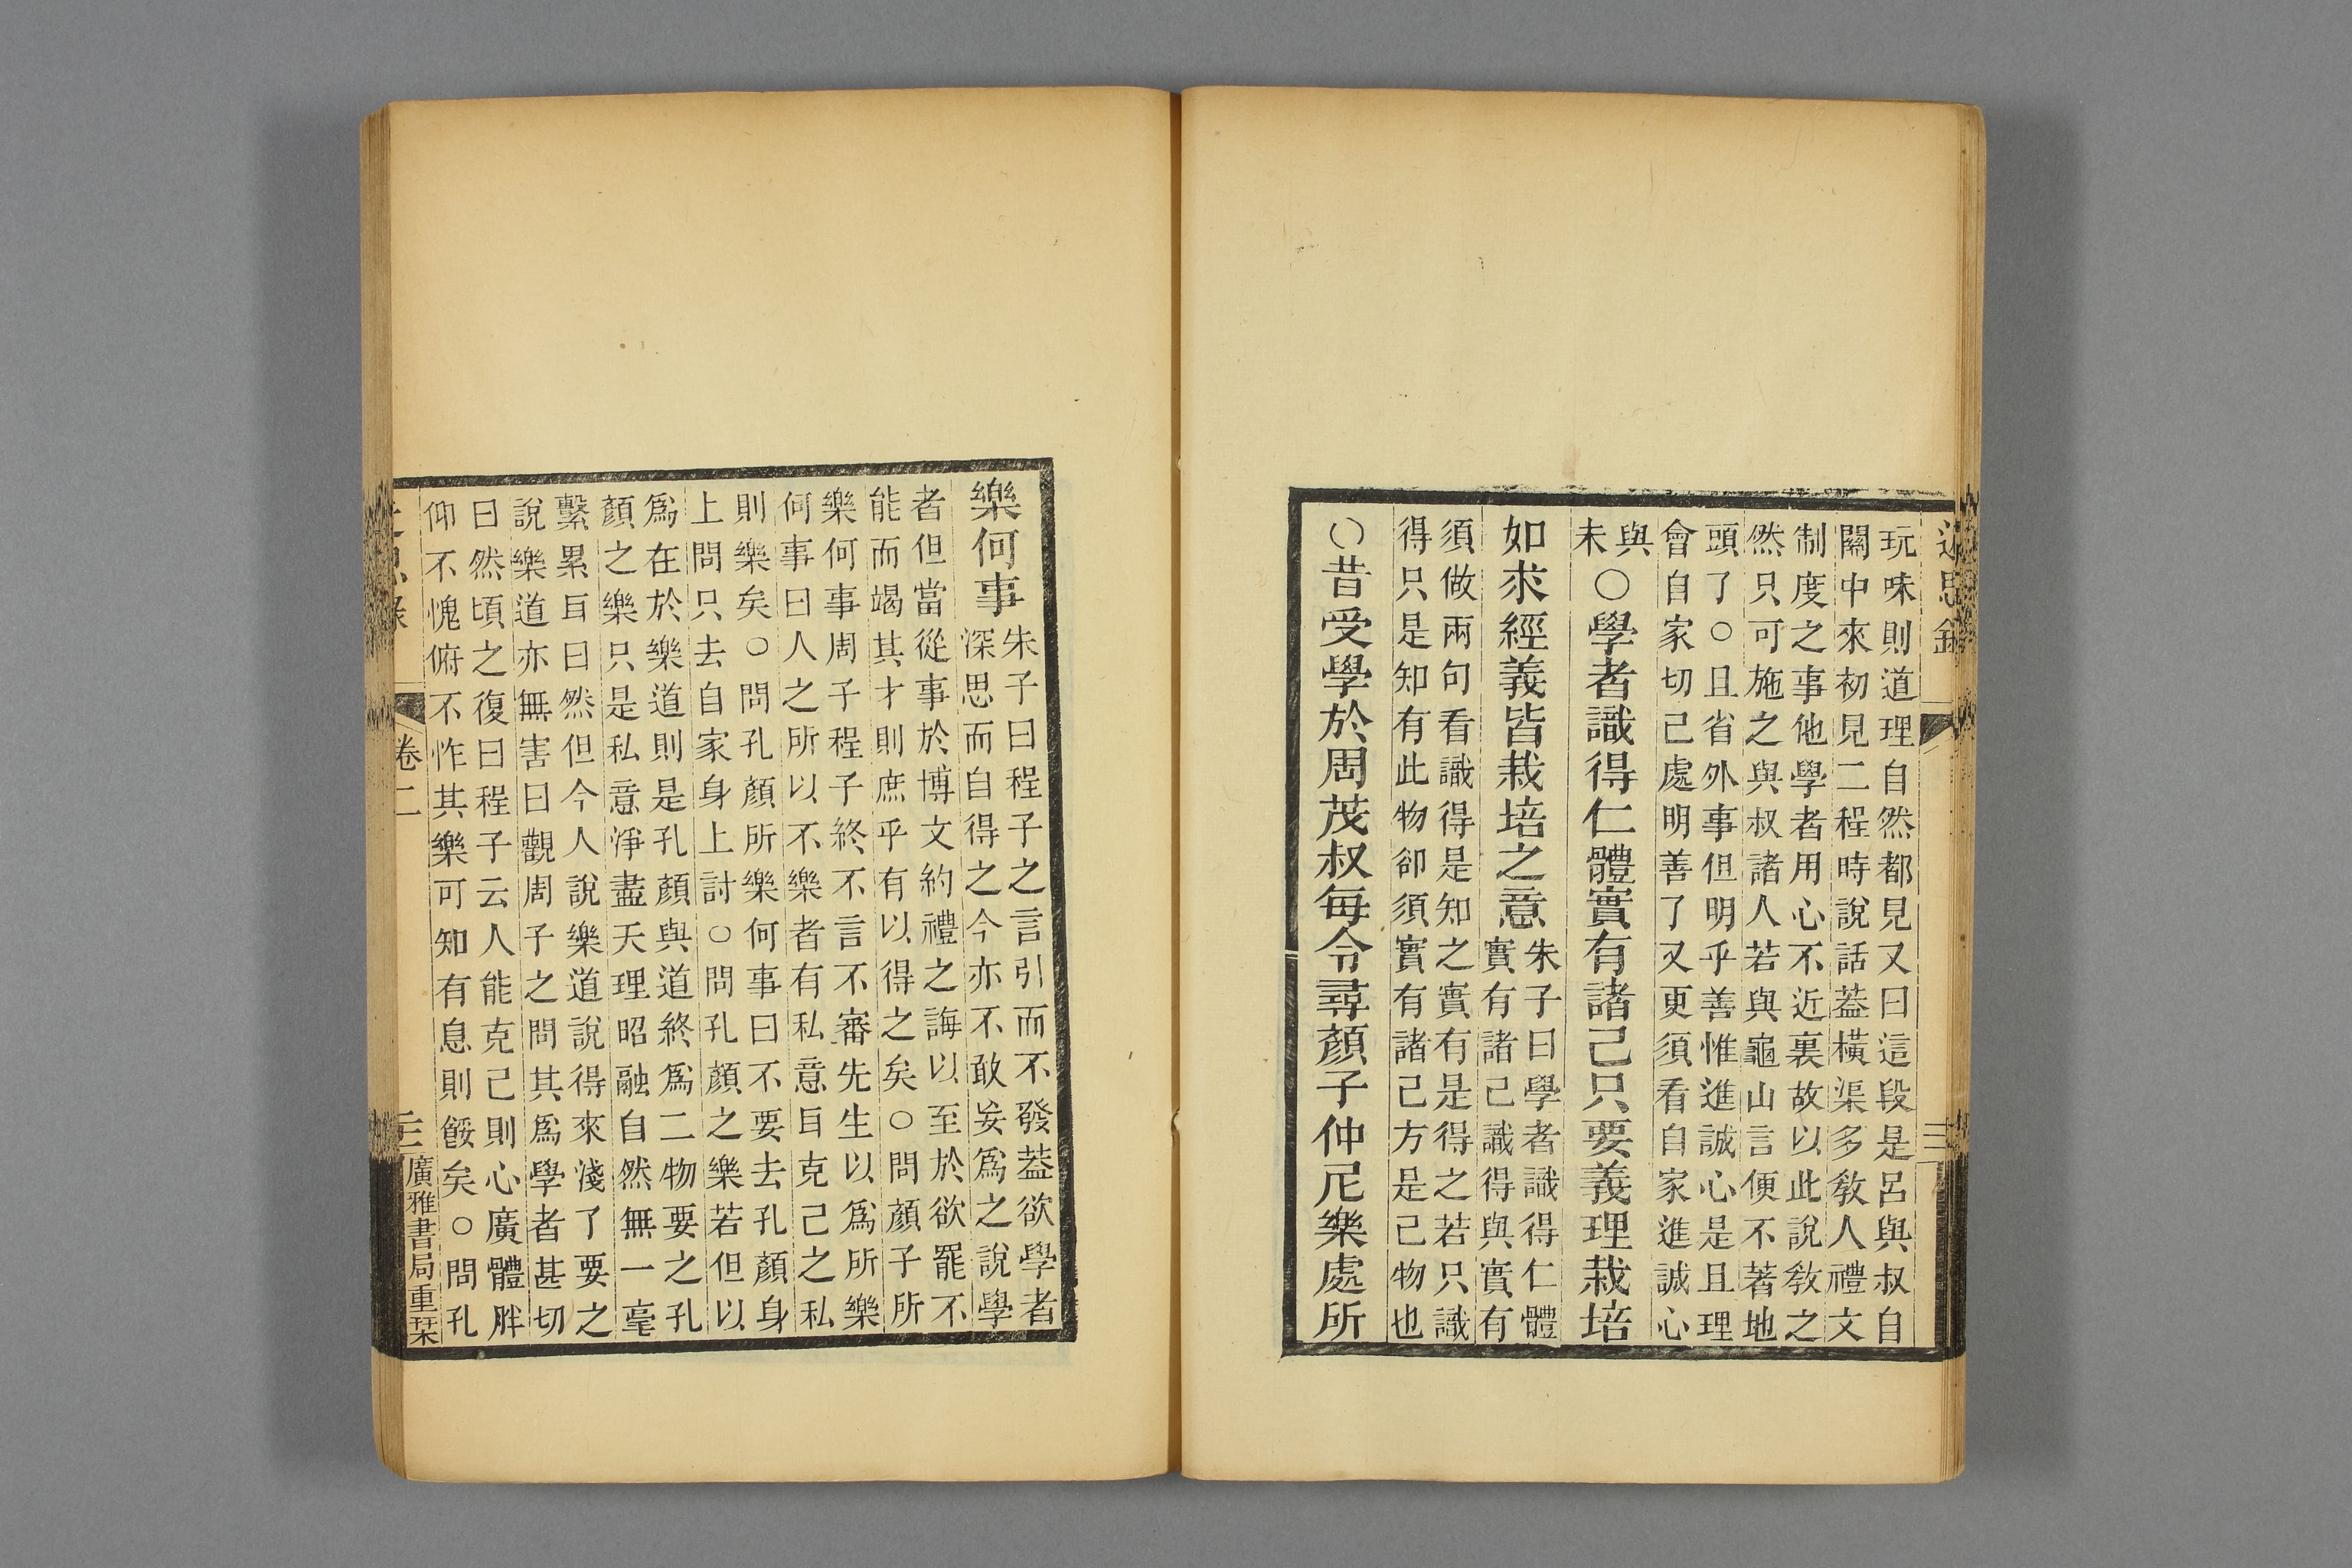 近思錄
玩味則道理自然都見又曰這段是呂與叔自
關中來初見二程時說話葢橫渠多敎人禮文
制度之事他學者用心不近裏故以此說敎之
然只可施之與叔諸人若與龜山言便不著地
頭了○且省外事但明乎善惟進誠心是且理
會自家切己處明善了又更須看自家進誠心
與
未○學者識得仁體實有諸己只要義理栽培
如求經義皆栽培之意朱子曰學者識得仁體
實有諸己識得與實有
須做兩句看識得是知之實有是得之若只識
得只是知有此物卻須實有諸己方是己物也
○昔受學於周茂叔每令尋顏子仲尼樂處所
樂何事朱子曰程子之言引而不發葢欲學者
深思而自得之今亦不敢妄爲之說學
者但當從事於博文約禮之誨以至於欲罷不
能而竭其才則庶乎有以得之矣○問顏子所
樂何事周子程子終不言不審先生以爲所樂
何事曰人之所以不樂者有私意耳克己之私
則樂矣○問孔顏所樂何事曰不要去孔顏身
上問只去自家身上討○問孔顏之樂若但以
爲在於樂道則是孔顏與道終爲二物要之孔
顏之樂只是私意淨盡天理昭融自然無一毫
繫累耳曰然但今人說樂道說得來淺了要之
說樂道亦無害曰觀周子之問其爲學者甚切
曰然頃之復曰程子云人能克己則心廣體胖
仰不愧俯不怍其樂可知有息則餒矣○問孔
卷二
廣雅書局重栞